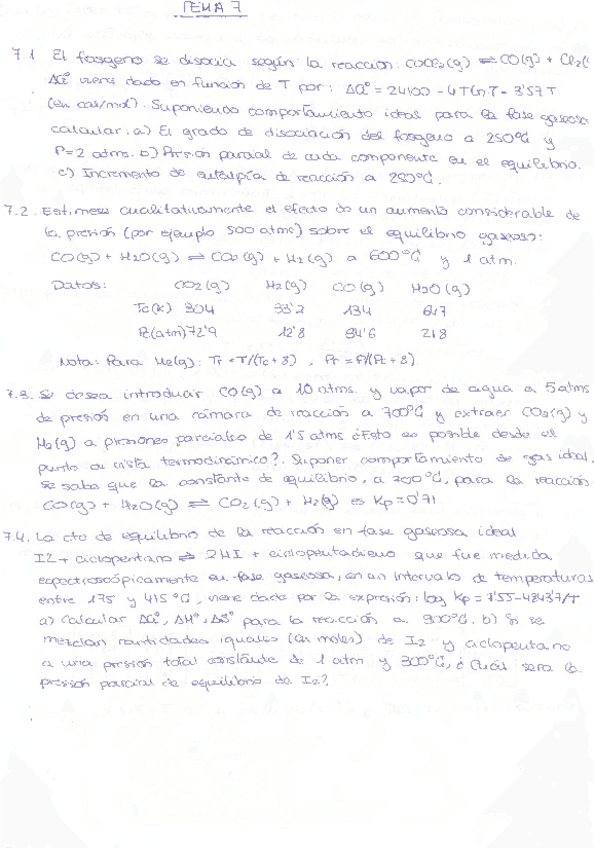 TEMA 7
7.1 El fosgeno se disocia según la reacción: COCl2(g) ⇌ CO(g) + Cl2(
ΔG° viene dado en función de T por: ΔG° = 24100 - 4TlnT - 3'57T
(en cal/mol). Suponiendo comportamiento ideal para la fase gaseosa
calcular: a) El grado de disociación del fosgeno a 250°C y
P=2 atms. b) Presión parcial de cada componente en el equilibrio.
c) Incremento de entalpía de reacción a 250°C.
7.2. Estímese cualitativamente el efecto de un aumento considerable de
la presión (por ejemplo 500 atms) sobre el equilibrio gaseoso:
CO(g) + H2O(g) ⇌ CO2(g) + H2(g) a 600°C y 1 atm.
Datos: CO2(g) H2(g) CO(g) H2O(g)
Tc(K) 304 33'2 134 647
Pc(atm) 72'9 12'8 34'6 218
Nota: Para H2(g): Tr = T/(Tc+8), Pr = P/(Pc+8)
7.3. Se desea introducir CO(g) a 10 atms. y vapor de agua a 5 atms
de presión en una cámara de reacción a 700°C y extraer CO2(g) y
H2(g) a presiones parciales de 1'5 atms ¿Esto es posible desde el
punto de vista termodinámico?. Suponer comportamiento de gas ideal.
Se sabe que la constante de equilibrio, a 700°C, para la reacción
CO(g) + H2O(g) ⇌ CO2(g) + H2(g) es Kp=0'71
7.4. La cte de equilibrio de la reacción en fase gaseosa ideal
I2 + ciclopentano ⇌ 2HI + ciclopentadieno que fue medida
espectroscópicamente en fase gaseosa, en un intervalo de temperaturas
entre 175 y 415°C, viene dada por la expresión: log Kp = 7'55-4843'7/T
a) Calcular ΔG°, ΔH°, ΔS° para la reacción a 300°C. b) Si se
mezclan cantidades iguales (en moles) de I2 y ciclopentano
a una presión total constante de 1 atm y 300°C, ¿Cuál será la
presión parcial de equilibrio de I2?